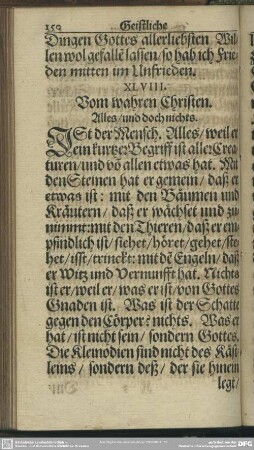 150 Geistliche
Dingen Gottes allerliebsten Wil-
len wol gefallē lassen / so hab ich Frie-
den mitten im Unfrieden.
XLVIII.
Vom wahren Christen.
Alles / und doch nichts.
IST der Mensch. Alles / weil er
ein kurtzer Begriff ist aller Crea-
turen / und vō allen etwas hat. Mit
den Steinen hat er gemein / daß er
etwas ist: mit den Bäumen und
Kräutern / daß er wächset und zu-
nimmt: mit den Thieren / daß er em-
pfindlich ist / siehet / höret / gehet / ste-
het / isst / trinckt: mit dē Engeln / daß
er Witz und Vernunfft hat. Nichts
ist er / weil er / was er ist / von Gottes
Gnaden ist. Was ist der Schatte
gegen den Cörper? nichts. Was er
hat / ist nicht sein / sondern Gottes.
Die Kleinodien sind nicht des Käst-
leins / sondern deß / der sie hinein
legt /